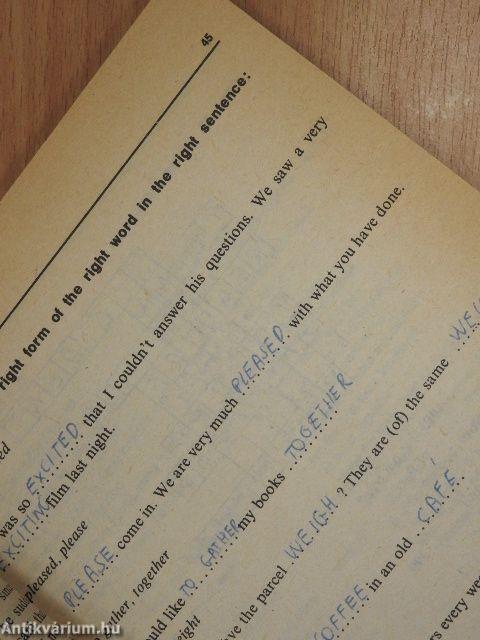 45
right form of the right word in the right sentence:
was so EXCITED that I couldn't answer his questions. We saw a very
EXCITING film last night.
pleased, please
PLEASE come in. We are very much PLEASED with what you have done.
together
like TO GATHER my books TOGETHER
the parcel WEIGH? They are (of) the same
in an old CAFÉ
every
Antikvárium.hu